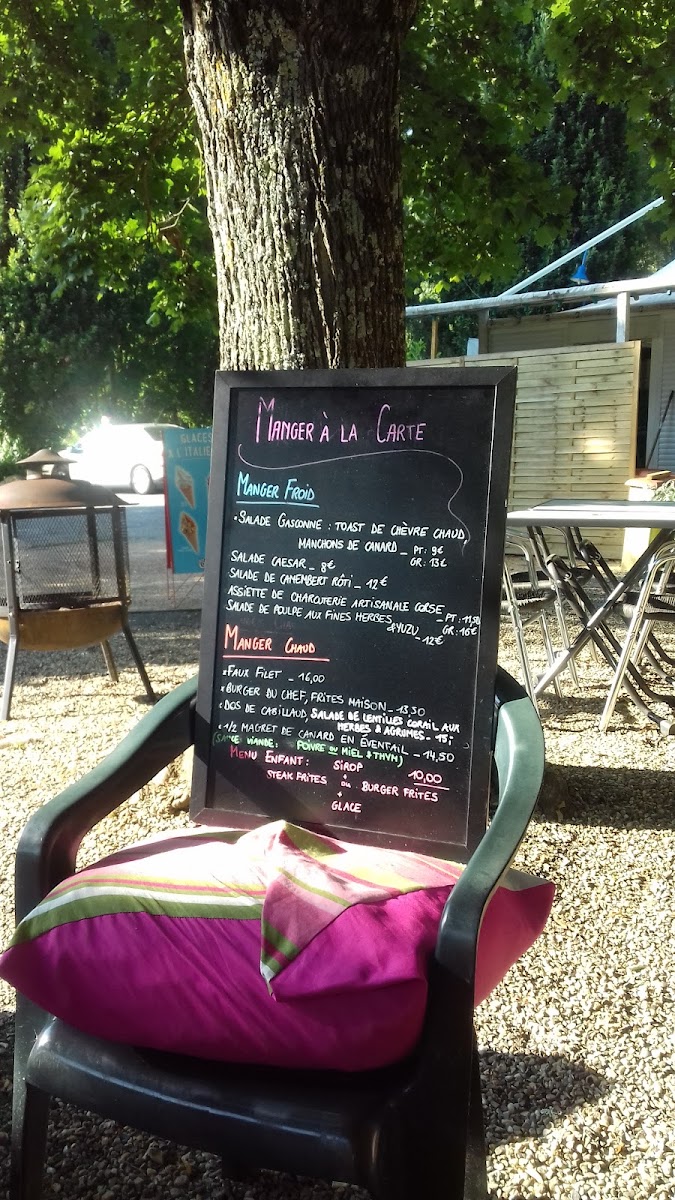 MANGER À LA CARTE
MANGER FROID
SALADE GASCONNE : TOAST DE CHÈVRE CHAUD,
MANCHONS DE CANARD _ PT : 9€
GR : 13€
SALADE CAESAR _ 8€
SALADE DE CAMEMBERT RÔTI _ 12€
ASSIETTE DE CHARCUTERIE ARTISANALE CORSE
_ PT : 11,50
GR : 16€
SALADE DE POULPE AUX FINES HERBES
& YUZU _ 12€
MANGER CHAUD
FAUX FILET _ 16,00
BURGER DU CHEF, FRITES MAISON _ 13,50
DOS DE CABILLAUD, SALADE DE LENTILLES CORAIL AUX
HERBES & AGRUMES _ 15
1/2 MAGRET DE CANARD EN ÉVENTAIL _ 14,50
(SAUCE VIANDE : POIVRE OU MIEL & THYM)
MENU ENFANT : SIROP 10,00
+
STEAK FRITES OU BURGER FRITES
+
GLACE
GLACES
À L'ITALIE